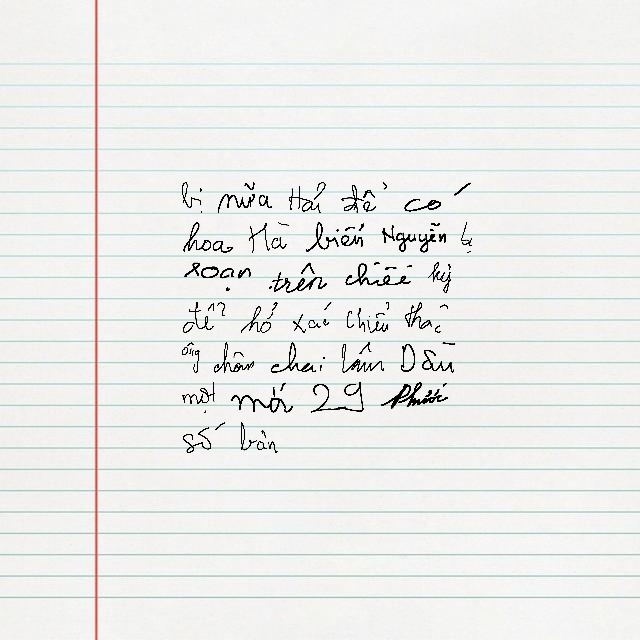 bị nữa Hải để có
hoa Hà biến Nguyễn bị
soạn trên chiếc kỳ
để hổ xác Chiểu thác
ông chân chai lâm Dầu
một mới 29 Phước
số bản